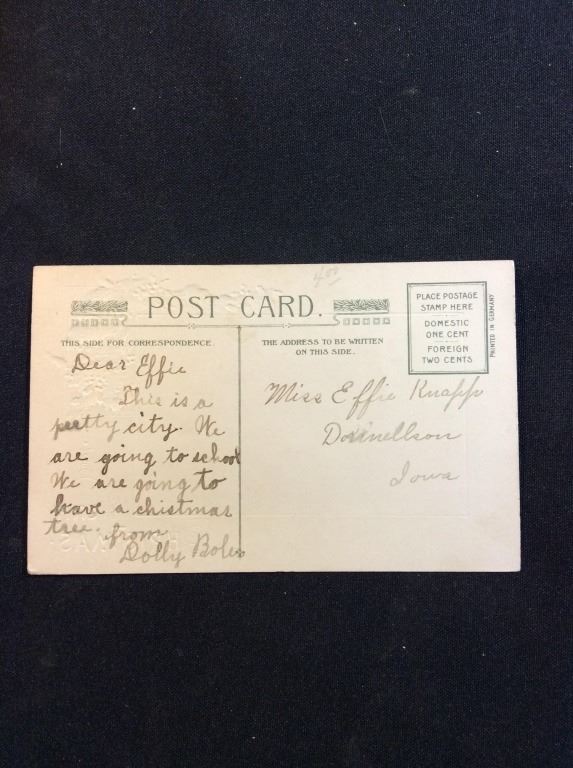 4.00
POST CARD.
PLACE POSTAGE
STAMP HERE
DOMESTIC
ONE CENT
FOREIGN
TWO CENTS
PRINTED IN GERMANY
THIS SIDE FOR CORRESPONDENCE.
THE ADDRESS TO BE WRITTEN
ON THIS SIDE.
Dear Effie
This is a
pretty city. We
are going to school
We are going to
have a chistmas
tree. from
Dolly Boles
Miss Effie Knapp
Donnellson
Iowa